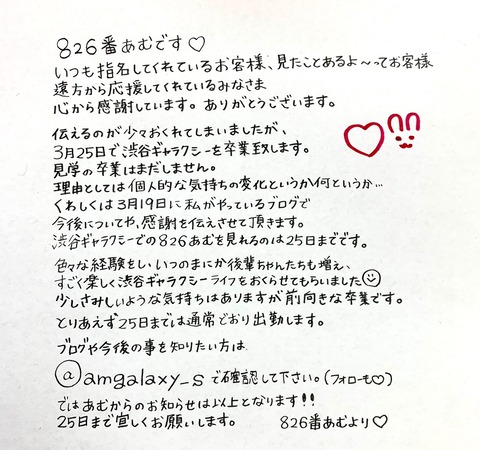 826番あむです♡
いつも指名してくれているお客様、見たことあるよ〜ってお客様
遠方から応援してくれているみなさま
心から感謝しています。ありがとうございます。
伝えるのが少々おくれてしまいましたが、
3月25日で渋谷ギャラクシーを卒業致します。
見学の卒業はまだしません。
理由としては個人的な気持ちの変化というか何というか…
くわしくは3月19日に私がやっているブログで
今後についてや、感謝を伝えさせて頂きます。
渋谷ギャラクシーでの826あむを見れるのは25日までです。
色々な経験をし、いつのまにか後輩ちゃんたちも増え、
すごく楽しく渋谷ギャラクシーライフをおくらせてもらいました☺
少しさみしいような気持ちはありますが前向きな卒業です。
とりあえず25日までは通常どおり出勤します。
ブログや今後の事を知りたい方は
@amgalaxy_sで確認して下さい。(フォローも♡)
ではあむからのお知らせは以上となります!!
25日まで宜しくお願いします。 826番あむより♡